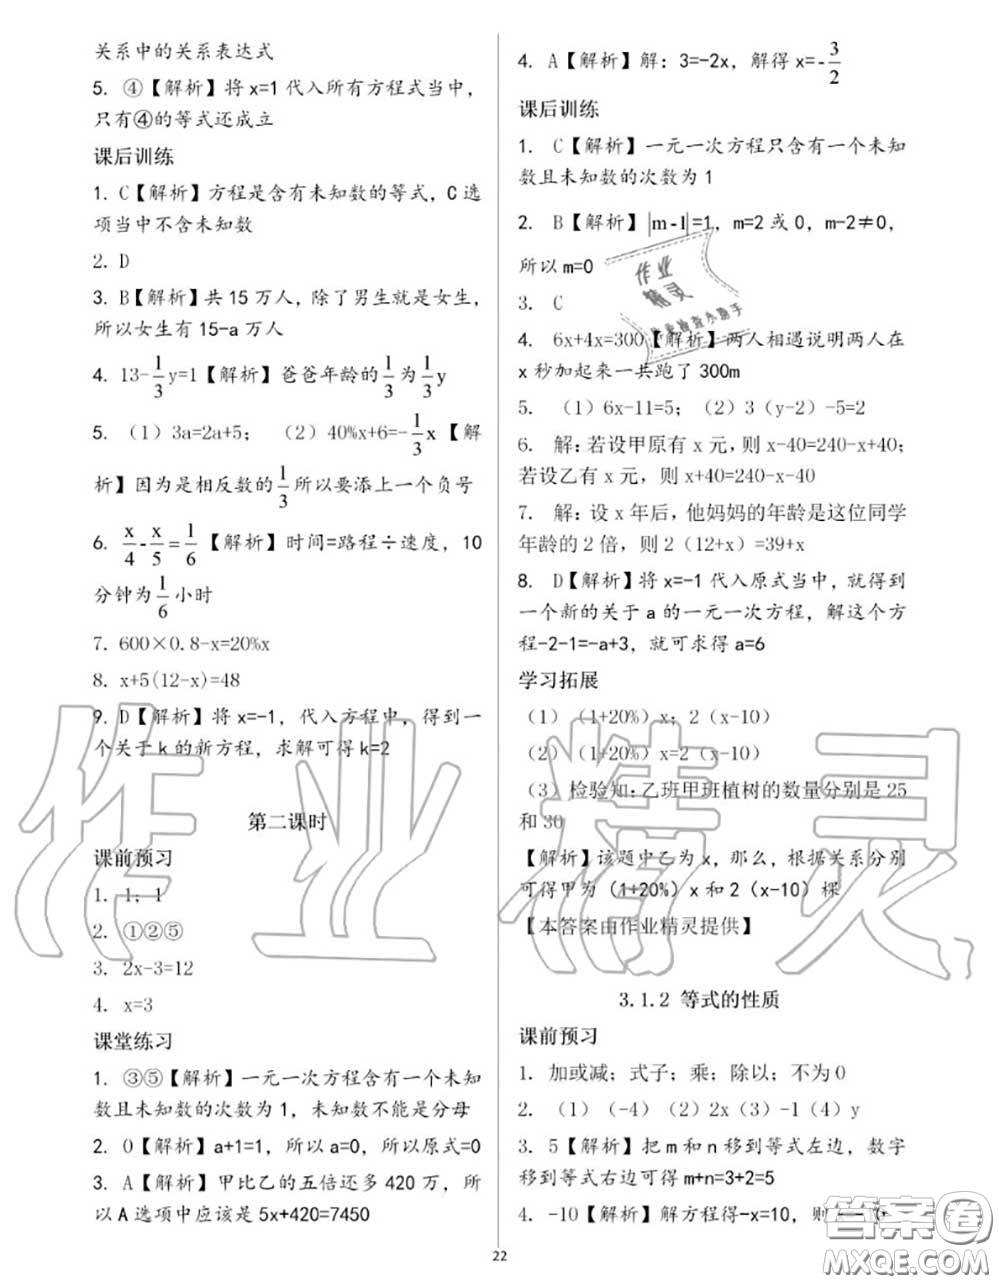 关系中的关系表达式
5. ④【解析】将 x=1 代入所有方程式当中，
只有④的等式还成立
课后训练
1. C【解析】方程是含有未知数的等式，C 选
项当中不含未知数
2. D
3. B【解析】共 15 万人，除了男生就是女生，
所以女生有 15-a 万人
4. 13-1/3y=1【解析】爸爸年龄的1/3为1/3y
5. （1）3a=2a+5； （2）40%x+6=-1/3x【解
析】因为是相反数的1/3所以要添上一个负号
6. x/4-x/5=1/6【解析】时间=路程÷速度，10
分钟为1/6小时
7. 600×0.8-x=20%x
8. x+5(12-x)=48
9. D【解析】将 x=-1，代入方程中，得到一
个关于 k 的新方程，求解可得 k=2
第二课时
课前预习
1. 1；1
2. ①②⑤
3. 2x-3=12
4. x=3
课堂练习
1. ③⑤【解析】一元一次方程含有一个未知
数且未知数的次数为 1，未知数不能是分母
2. 0【解析】a+1=1，所以 a=0，所以原式=0
3. A【解析】甲比乙的五倍还多 420 万，所
以 A 选项中应该是 5x+420=7450
4. A【解析】解：3=-2x，解得 x=-3/2
课后训练
1. C【解析】一元一次方程只含有一个未知
数且未知数的次数为 1
2. B【解析】|m-1|=1，m=2 或 0，m-2≠0，
所以 m=0
3. C
4. 6x+4x=300【解析】两人相遇说明两人在
x 秒加起来一共跑了 300m
5. （1）6x-11=5；（2）3（y-2）-5=2
6. 解：若设甲原有 x 元，则 x-40=240-x+40；
若设乙有 x 元，则 x+40=240-x-40
7. 解：设 x 年后，他妈妈的年龄是这位同学
年龄的 2 倍，则 2（12+x）=39+x
8. D【解析】将 x=-1 代入原式当中，就得到
一个新的关于 a 的一元一次方程，解这个方
程-2-1=-a+3，就可求得 a=6
学习拓展
（1）（1+20%）x；2（x-10）
（2）（1+20%）x=2（x-10）
（3）检验知：乙班甲班植树的数量分别是 25
和 30
【解析】该题中乙为 x，那么，根据关系分别
可得甲为（1+20%）x 和 2（x-10）棵
【本答案由作业精灵提供】
3.1.2 等式的性质
课前预习
1. 加或减；式子；乘；除以；不为 0
2. （1）（-4）（2）2x（3）-1（4）y
3. 5【解析】把 m 和 n 移到等式左边，数字
移到等式右边可得 m+n=3+2=5
4. -10【解析】解方程得-x=10，则
22
作业精灵
作业
精灵
答案卷
MXQE.COM